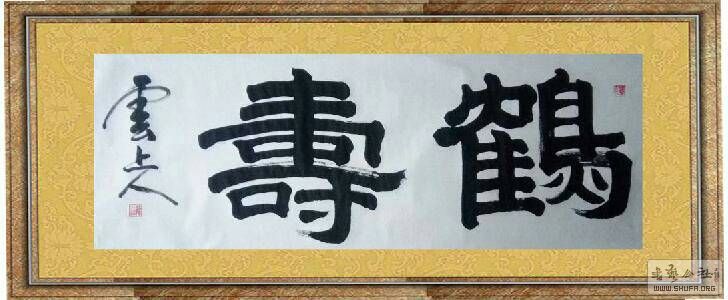 鶴壽
雲上人
WWW.SHUFA.ORG